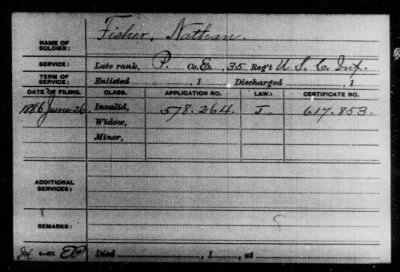 NAME OF SOLDIER: Fisher, Nathan.
SERVICE: Late rank, P. Co. E, 35 Reg't U. S. C. Inf.
TERM OF SERVICE: Enlisted , 1 Discharged , 1
DATE OF FILING. CLASS. APPLICATION NO. LAW. CERTIFICATE NO.
1886 June 26 Invalid, 578.264. J. 617.853.
Widow,
Minor,
ADDITIONAL SERVICES:
REMARKS:
Died , 1 , at